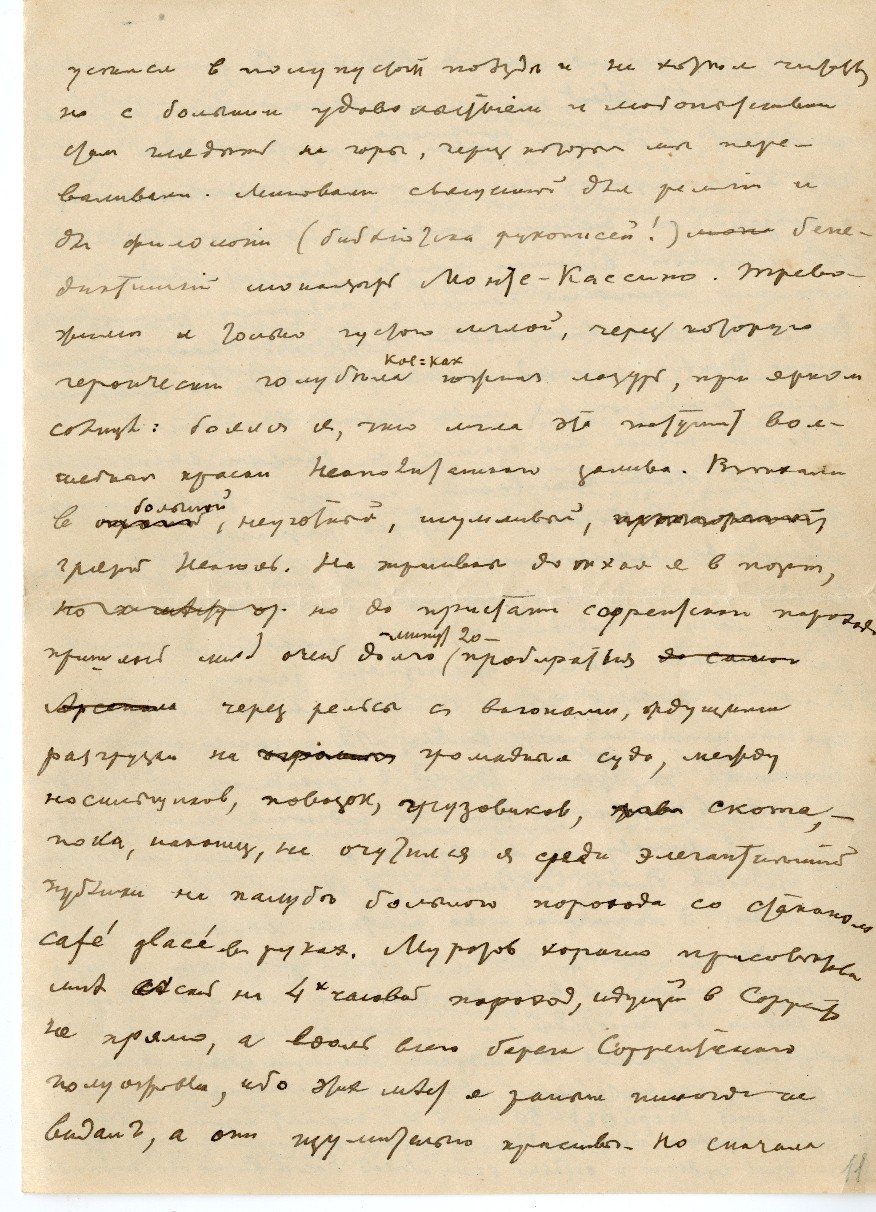 уселся в полупустой поѣздъ и не хотѣл читать,
но с большим удовольствіем и любопытством
стал глядѣть на горы, через которыя мы пере-
валивали. Миновали священный для религіи и
для филологіи (библіотека рукописей!) бене-
диктинскій монастырь Монте-Кассино. Трево-
жился я только густою мглой, через которую
героически кое=как голубѣла южная лазурь, при ярком
солнцѣ: боялся я, что мгла эта потушит вол-
шебныя краски Неаполитанского залива. Въѣхали
в большой, неуютный, шумливый,
грязный Неаполь. На трамваѣ доѣхал я в порт,
но до пристани соррентского парохода
пришлось мнѣ очень долго (минут 20) пробираться
через рельсы с вагонами, идущими
разгрузки на громадныя суда, между
носильщиков, повозок, грузовиков, скота, —
пока, наконец, не очутился я среди элегантнѣйшей
публики на палубѣ большого парохода со стаканом
café glacé в руках. Муратов хорошо присовѣтовал
мнѣ сѣсть на 4х часовой пароход, идущій в Сорренто
не прямо, а вдоль всего берега Соррентскаго
полуострова, ибо этих мѣст я раньше никогда не
видалъ, а они изумительно красивы. Но сначала
11